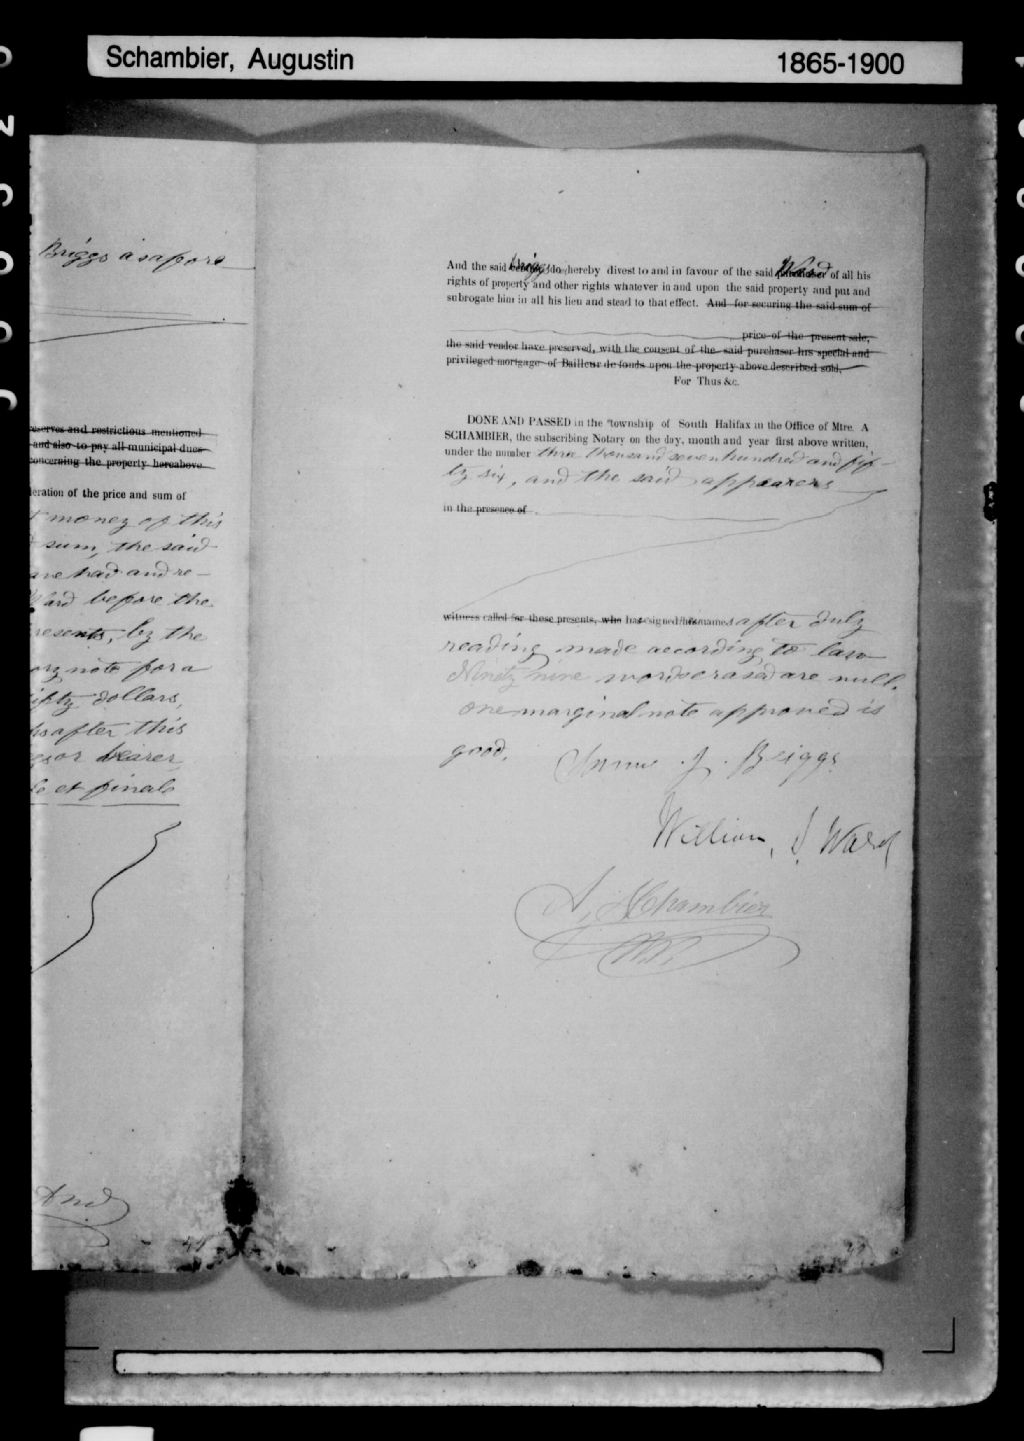 Schambier, Augustin 1865-1900
Briggs
reserves and restrictions mentioned
and also to pay all municipal dues
concerning the property hereabove
deration of the price and sum of
money of this
sum, the said
had and re-
Ward before the
resents, by the
note for a
fifty dollars,
after this
or bearer
et finale
And the said Briggs do hereby divest to and in favour of the said Ward of all his
rights of property and other rights whatever in and upon the said property and put and
subrogate him in all his lieu and stead to that effect. And for securing the said sum of
price of the present sale,
the said vendor have preserved, with the consent of the said purchaser his special and
privileged mortgage of Bailleur de fonds upon the property above described sold,
For Thus &c.
DONE AND PASSED in the township of South Halifax in the Office of Mtre. A
SCHAMBIER, the subscribing Notary on the day, month and year first above written,
under the number three thousand seven hundred and fif-
ty six, and the said appearers
in the presence of
witness called for these presents, who has signed his names after duly
reading made according to law
Ninety nine words erased are null,
one marginal note approved is
good.
J. Briggs
William J. Ward
A. Schambier
N.P.